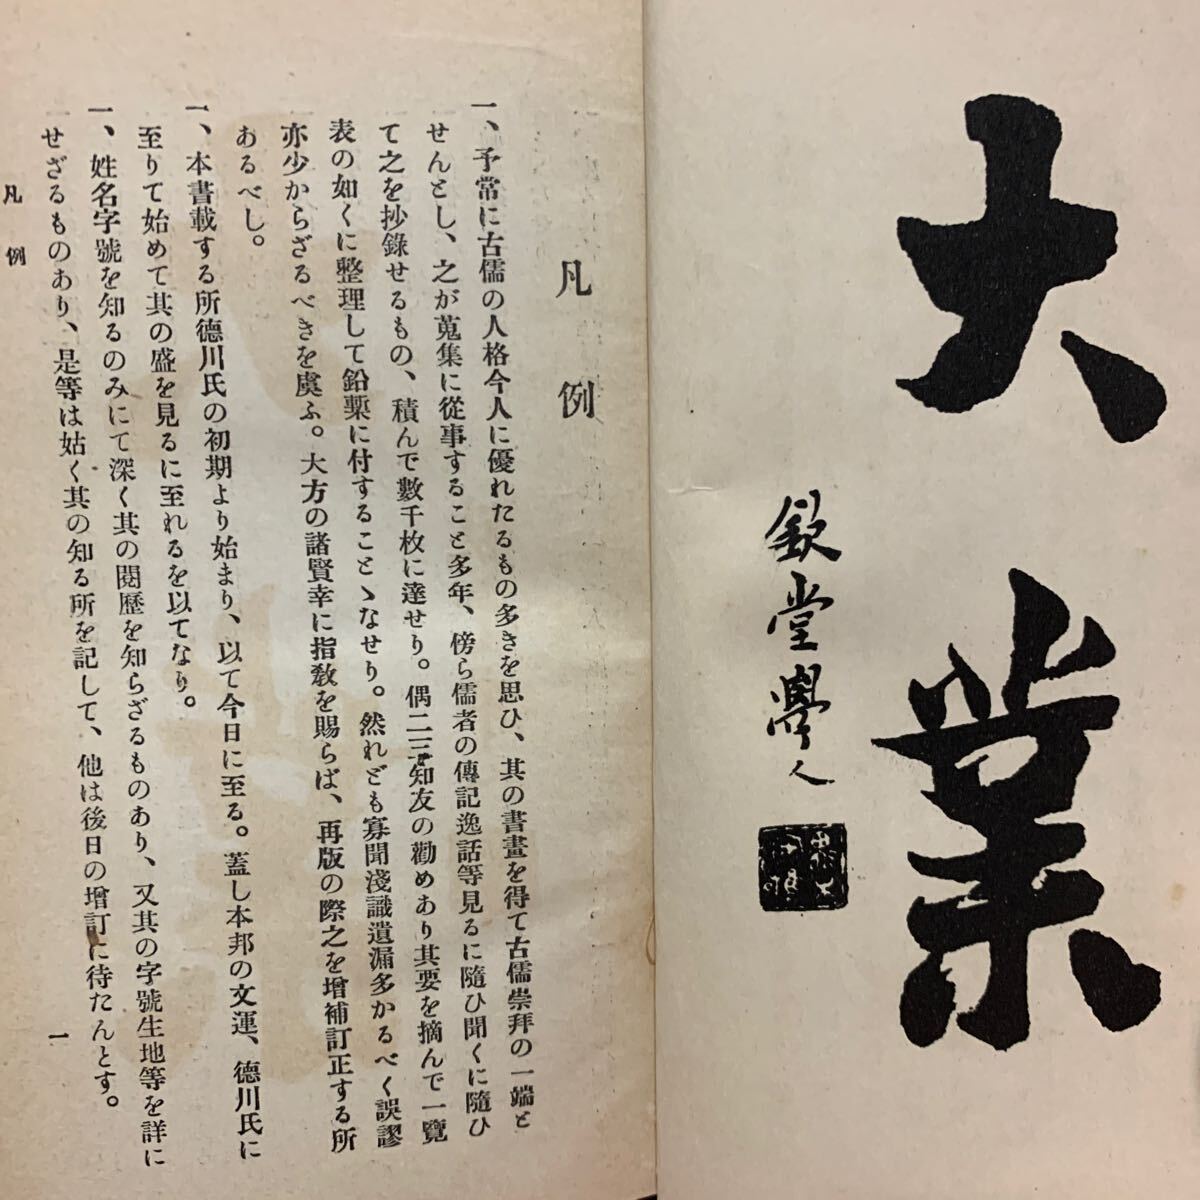 大業
欽堂學人
凡例
一、予常に古儒の人格今人に優れたるもの多きを思ひ、其の書畫を得て古儒崇拜の一端と
せんとし、之が蒐集に從事すること多年、傍ら儒者の傳記逸話等見るに隨ひ聞くに隨ひ
て之を抄錄せるもの、積んで數千枚に達せり。偶二三知友の勸めあり其要を摘んで一覽
表の如くに整理して鉛槧に付することゝなせり。然れども寡聞淺識遺漏多かるべく誤謬
亦少からざるべきを虞ふ。大方の諸賢幸に指敎を賜らば、再版の際之を增補訂正する所
あるべし。
一、本書載する所德川氏の初期より始まり、以て今日に至る。蓋し本邦の文運、德川氏に
至りて始めて其の盛を見るに至れるを以てなり。
一、姓名字號を知るのみにて深く其の閱歷を知らざるものあり、又其の字號生地等を詳に
せざるものあり、是等は姑く其の知る所を記して、他は後日の增訂に待たんとす。
凡例
一